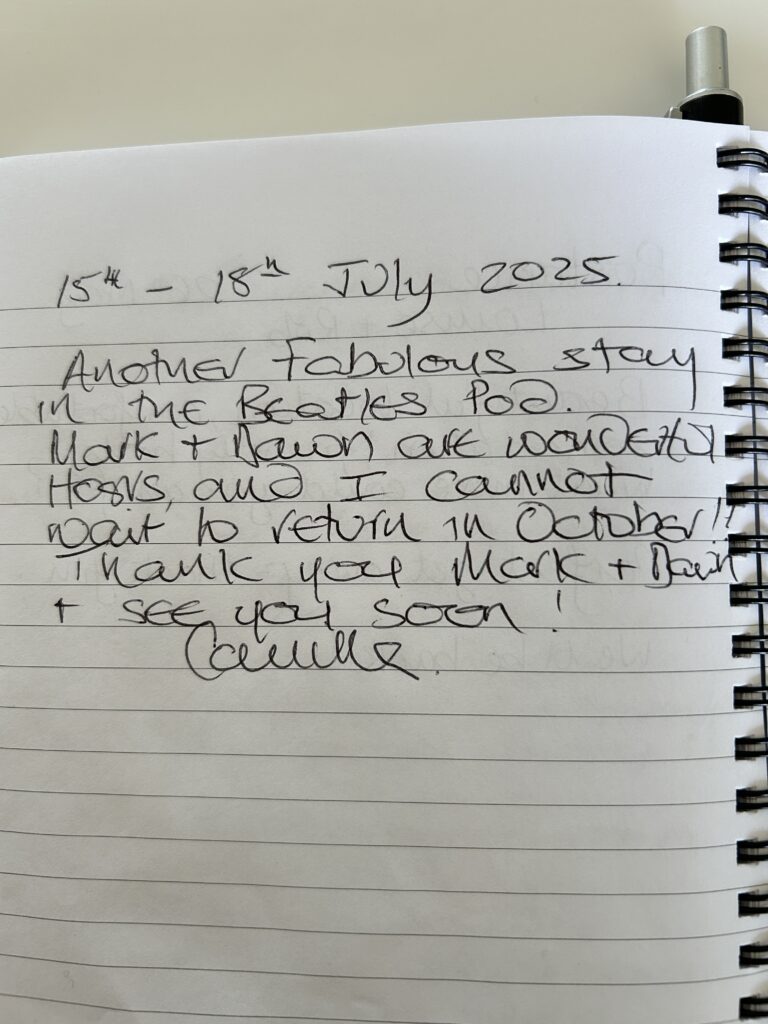 15th - 18th July 2025.
Another fabulous stay
in the Beatles Pod.
Mark + Dawn are wonderful
Hosts, and I cannot
wait to return in October!!
Thank you Mark + Dawn
+ see you soon!
Camilla.